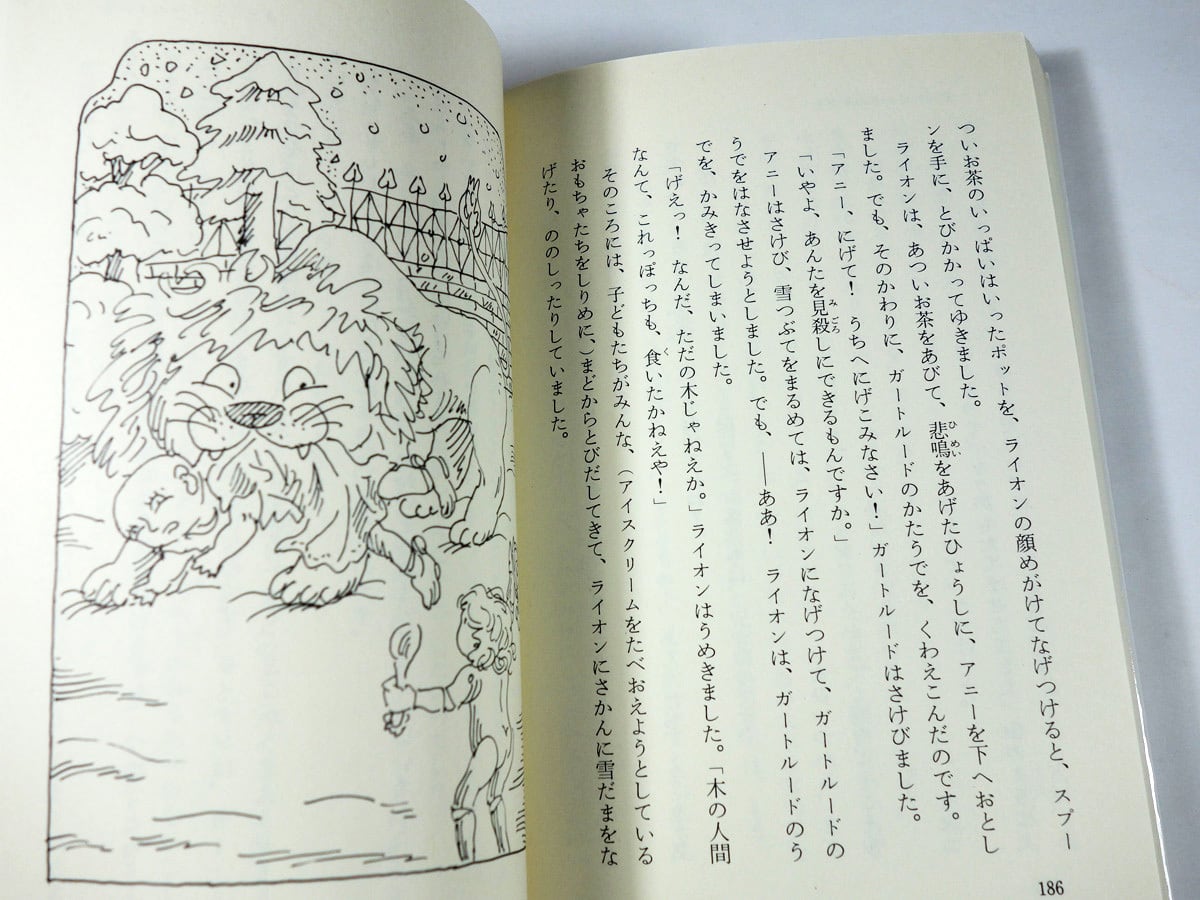 ついお茶のいっぱいはいったポットを、ライオンの顔めがけてなげつけると、スプー
ンを手に、とびかかってゆきました。
ライオンは、あついお茶をあびて、悲鳴をあげたひょうしに、アニーを下へおとし
ました。でも、そのかわりに、ガートルードのかたうでを、くわえこんだのです。
「アニー、にげて！　うちへにげこみなさい！」ガートルードはさけびました。
「いやよ、あんたを見殺しにできるもんですか。」
アニーはさけび、雪つぶてをまるめては、ライオンになげつけて、ガートルードの
うでをはなさせようとしました。でも、——ああ！　ライオンは、ガートルードのう
でを、かみきってしまいました。
「げえっ！　なんだ、ただの木じゃねえか。」ライオンはうめきました。「木の人間
なんて、これっぽっちも、食いたかねえや！」
そのころには、子どもたちがみんな、（アイスクリームをたべおえようとしている
おもちゃたちをしりめに、）まどからとびだしてきて、ライオンにさかんに雪だまをな
げたり、ののしったりしていました。
186